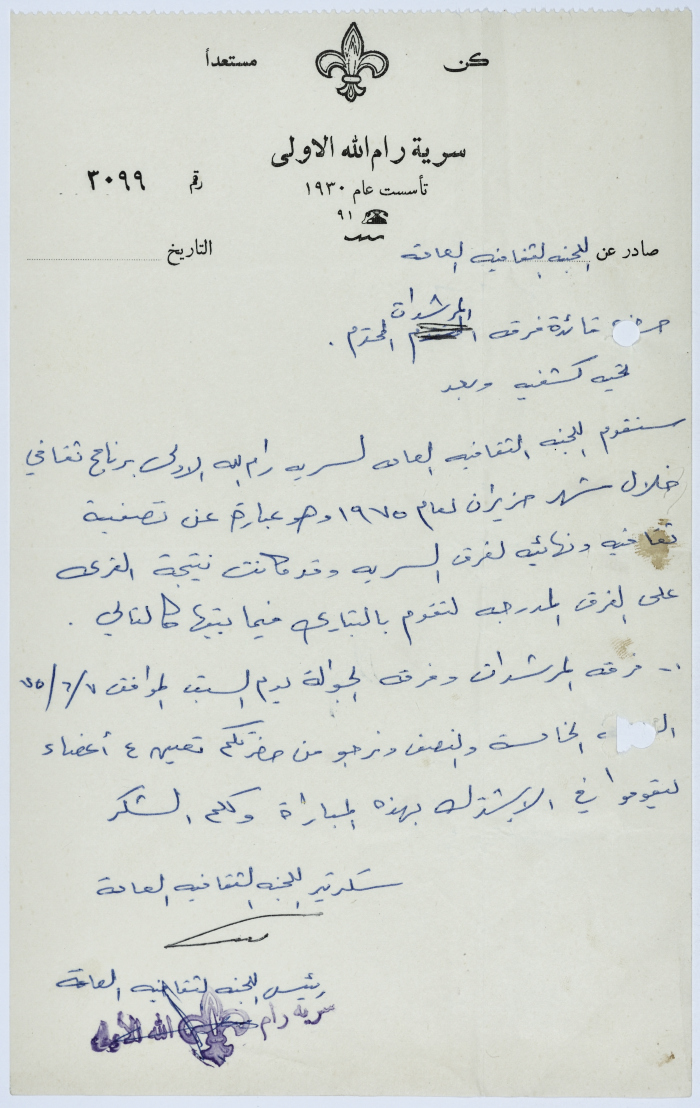 كن مستعداً
سرية رام الله الاولى
تأسست عام ١٩٣٠
رقم ٣٠٩٩
٩١
صادر عن اللجنه الثقافيه العامة
التاريخ
المرشدات
قائدة فرقه المحترم .
تحيه كشفيه وبعد
ستقوم اللجنه الثقافيه العامه لسريه رام الله الاولى برنامج ثقافي
خلال شهر حزيران لعام ١٩٧٥ وهو عبارة عن تصفية
ثقافيه ونهائيه لفرق السريه وقد كانت نتيجة القرعه
على الفرق المدرجه لتقوم بالتباري فيما بينها كالتالي .
١- فرقه المرشدات وفرقه الجوالة يوم السبت الموافق ٧٥/٦/٧
الخامسة والنصف ونرجو من حضرتكم تعيين ٤ أعضاء
ليقوموا في الاشتراك بهذه المباراة ولكم الشكر
سكرتير اللجنه الثقافيه العامة
رئيس اللجنه الثقافيه العامة
سرية رام الله الأولى